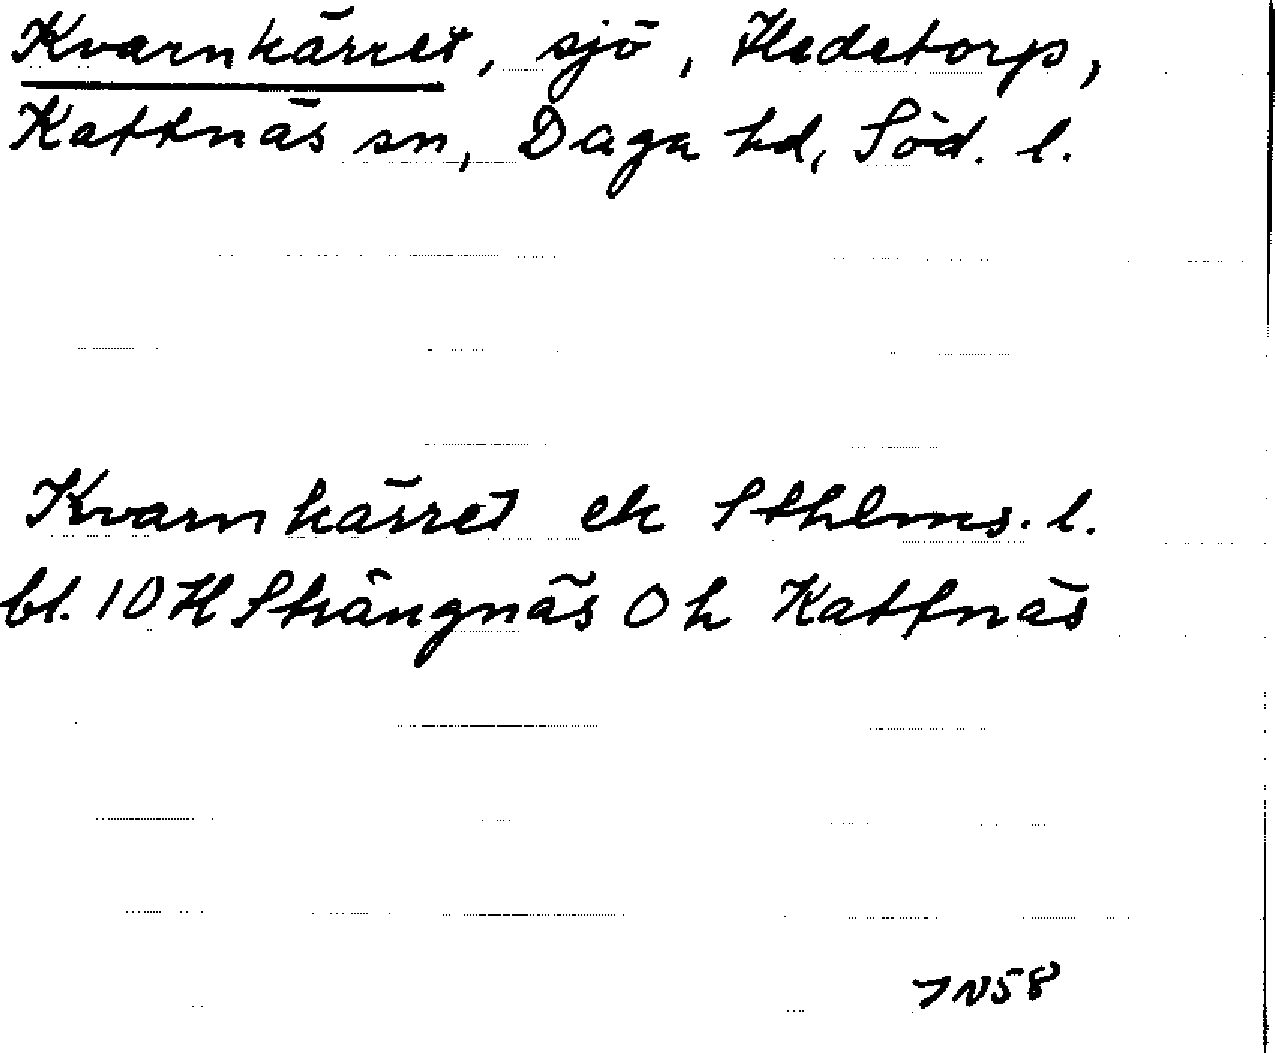 Kvarnkärret, sjö, Hedetorp,
Kattnäs sn, Daga hd, Söd. l.
Kvarnkärret ek Sthlms. l.
bl. 10 H Strängnäs O h Kattnäs
7N58